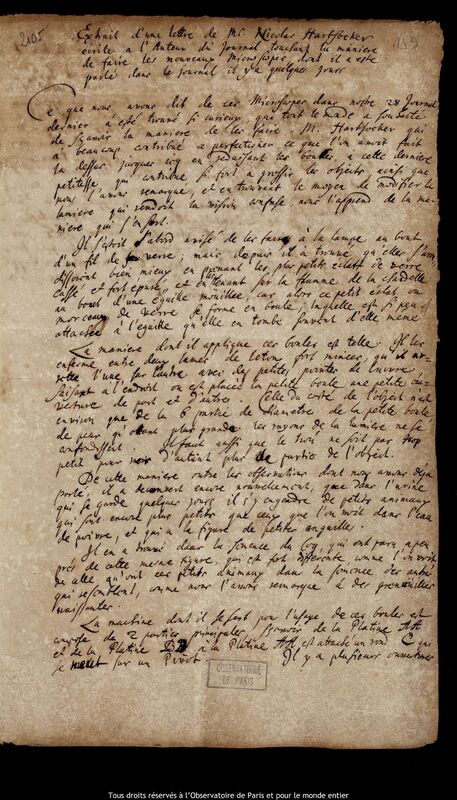 2105
159
Extrait d'une lettre de Mr Nicolas Hartsocker
écrite a l'Auteur du Journal touchant la maniere
de faire les nouveaux Microscopes, dont il a esté
parlé dans le Journal il y a quelques jours
Ce que nous avons dit de ces Microscopes dans nostre 28 Journal
dernier a esté trouvé si curieux, que tout le monde a souhaité
de sçavoir la maniere de les faire. M. Hartsocker qui
a beaucoup contribué a perfectionner ce que l'on avoit fait
la dessus jusques icy en reduisant les boules a cette derniere
petitesse, qui contribue si fort a grossir les objects, ainsi que
nous l'avons remarqué, et en trouvant le moyen de modifier la
lumiere qui rendroit la vision confuse nous l'apprend de la ma-
niere qui s'en suit.
Il s'estoit d'abord avisé de les faire a la lampe au bout
d'un fil de verre, mais depuis il a trouvé qu'elles s'arron-
dissoient bien mieux en prenant les plus petits éclats de verre
cassé et fort épuré, et en les tenant sur la flamme de la chandelle
au bout d'une éguille mouillée, car alors ce petit éclat ou
morceau de verre se forme en boule, laquelle est si peu
attachée a l'éguille qu'elle en tombe souvent d'elle même
La maniere dont il applique ces boules est telle. Il les
enferme entre deux lames de leton fort minces, qu'il
l'une sur l'autre avec des petites pointes de cuivre
faisant a l'endroit ou est placée la petite boule une petite ou-
verture de part et d'autre. Celle du costé de l'object n'est
environ que de la 6 partie du diametre de la petite boule
de peur qu'étant plus grande les rayons de la lumiere ne se
confondissent. Il faut aussi que le trou ne soit pas trop
petit pour voir d'autant plus de partie de l'object.
De cette maniere outre les observations dont nous avons déja
parlé, il a decouvert encore nouvellement, que dans l'urine
qui se garde quelques jours il s'y engendre de petits animaux
qui sont encore plus petits que ceux que l'on voit dans l'eau
de poivre, et qui ont la figure de petites anguilles.
Il en a trouvé dans la semence du Coq, qui ont paru a peu
prés de cette mesme figure, qui est fort differente comme l'on voit
de celle qu'ont ces petits animaux dans la semence des autres
qui ressemblent, comme nous l'avons remarqué a des grenouilles
naissantes.
La machine dont il se sert pour l'usage de ces boules est
composée de 2 parties principales, sçavoir de la Platine AA
et de la Platine BB, a la Platine AA est attaché un rond C qui
se meut sur un Pivot. Il y a plusieurs ouvertures
OBSERVATOIRE
DE PARIS
Tous droits réservés à l'Observatoire de Paris et pour le monde entier